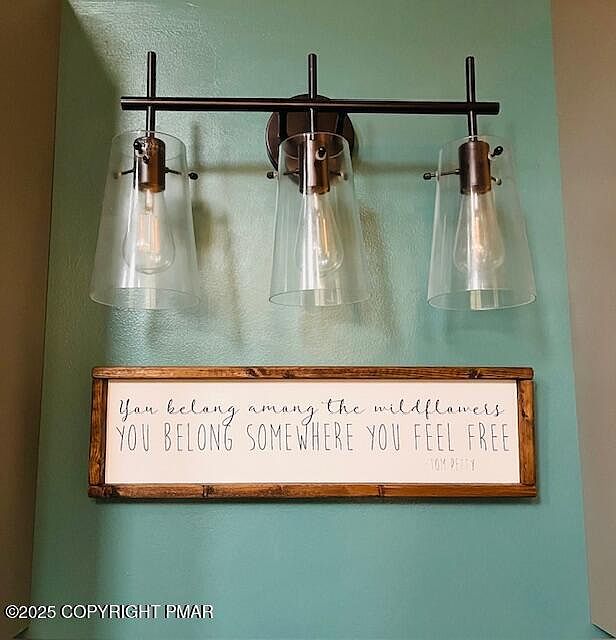 You belong among the wildflowers
YOU BELONG SOMEWHERE YOU FEEL FREE
-TOM PETTY
©2025 COPYRIGHT PMAR